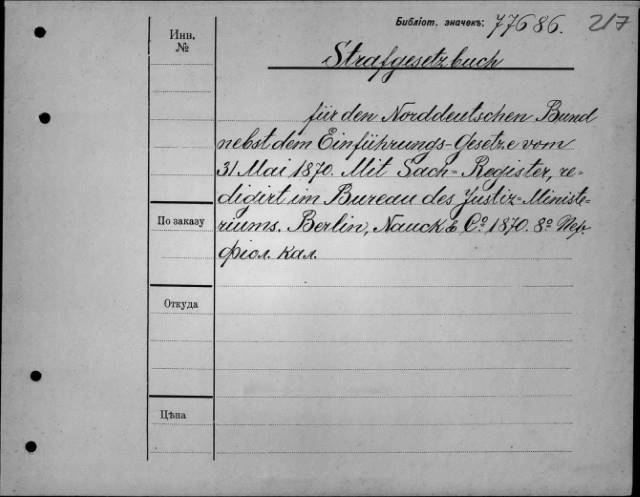 Библіот. значекъ: 77686. 217
Инв.
№
Strafgesetzbuch
für den Norddeutschen Bund
nebst dem Einführungs-Gesetze vom
31 Mai 1870. Mit Sach-Register, re-
digirt im Bureau des Justiz-Ministe-
По заказу
riums. Berlin, Nauck & Cº. 1870. 8º Пер.
фіол. кал.
Откуда
Цѣна